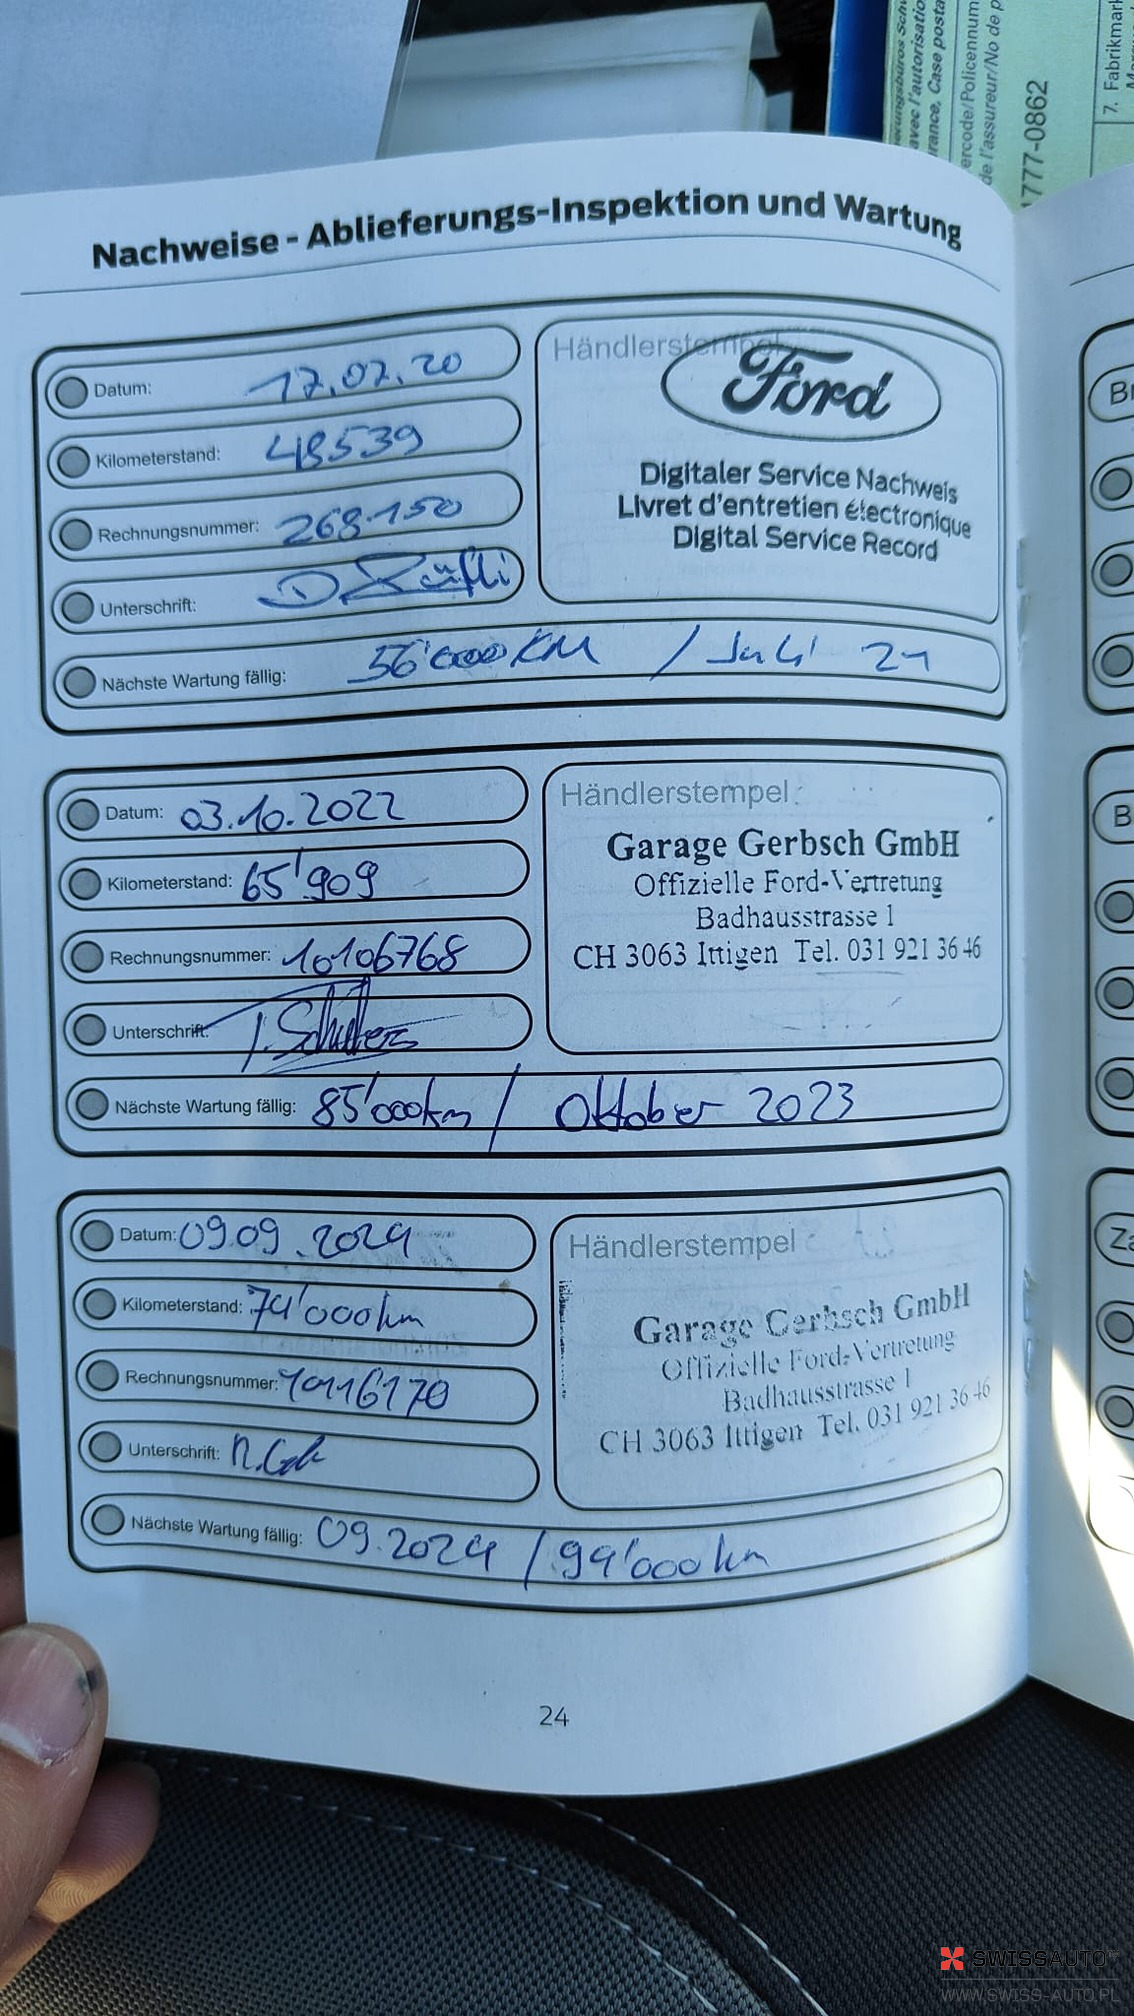 ercode/Policennum
de l'assureur/No de p
avec l'autorisatio
rance, Case posta
1777-0862
7. Fabrikmark
Nachweise - Ablieferungs-Inspektion und Wartung
Datum: 17.07.20
Kilometerstand: 48539
Rechnungsnummer: 268150
Unterschrift:
Nächste Wartung fällig: 56'000 KM / Juli 21
Händlerstempel
Ford
Digitaler Service Nachweis
Livret d'entretien électronique
Digital Service Record
Datum: 03.10.2022
Kilometerstand: 65'909
Rechnungsnummer: 10106768
Unterschrift:
Nächste Wartung fällig: 85'000km / Oktober 2023
Händlerstempel:
Garage Gerbsch GmbH
Offizielle Ford-Vertretung
Badhausstrasse 1
CH 3063 Ittigen Tel. 031 921 36 46
Datum: 09.09.2024
Kilometerstand: 79'000km
Rechnungsnummer: 10116170
Unterschrift:
Nächste Wartung fällig: 09.2024 / 99'000km
Händlerstempel
Garage Gerbsch GmbH
Offizielle Ford-Vertretung
Badhausstrasse 1
CH 3063 Ittigen Tel. 031 921 36 46
24
SWISSAUTO
WWW.SWISS-AUTO.PL